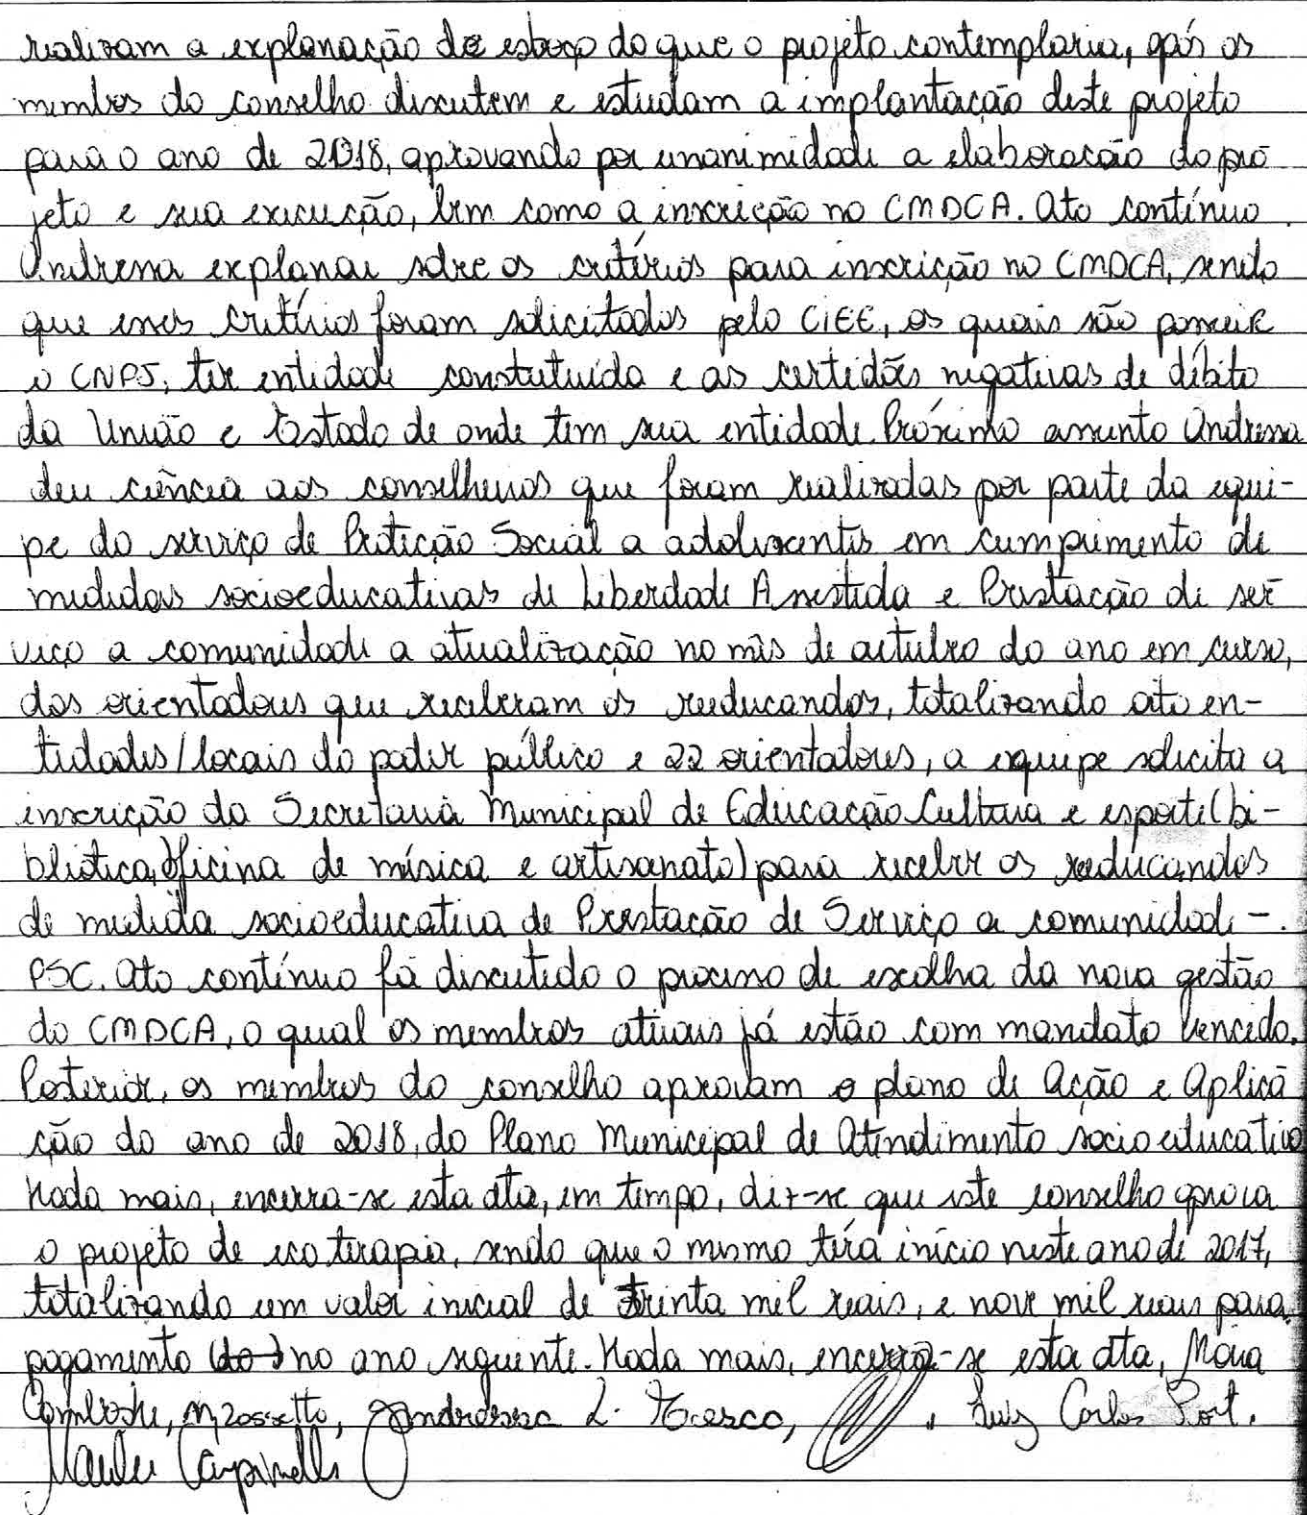 realizam a explanação de esboço do que o projeto contemplaria, após os
membros do conselho discutem e estudam a implantação deste projeto
para o ano de 2018, aprovando por unanimidade a elaboração do pro
jeto e sua execução, bem como a inscrição no CMDCA. Ato contínuo
Andressa explanou sobre os critérios para inscrição no CMDCA, sendo
que esses critérios foram solicitados pelo CIEE, os quais são possuir
o CNPJ, ter entidade constutuída e as certidões negativas de débito
da União e Estado de onde tem sua entidade. Próximo assunto Andressa
deu ciência aos conselheiros que foram realizadas por parte da equi-
pe do serviço de Proteção Social a adolescentes em cumprimento de
medidas socioeducativas de Liberdade Assistida e Prestação de ser
viço a comunidade a atualização no mês de outubro do ano em curso,
dos orientadores que receberam os reeducandos, totalizando oito en-
tidades/locais do poder público e 22 orientadores, a equipe solicita a
inscrição da Secretaria Municipal de Educação Cultura e esporte (bi-
blioteca, oficina de música e artesanato) para receber os reeducandos
de medida socioeducativa de Prestação de Serviço a comunidade -
PSC. Ato contínuo foi discutido o processo de escolha da nova gestão
do CMDCA, o qual os membros atuais já estão com mandato vencido.
Posterior, os membros do conselho aprovam o plano de Ação e Aplica
ção do ano de 2018, do Plano Municipal de Atendimento socioeducativo
Nada mais, encerra-se esta ata, em tempo, diz-se que este conselho aprova
o projeto de ecoterapia, sendo que o mesmo terá início neste ano de 2017,
totalizando um valor inicial de trinta mil reais, e nove mil reais para
pagamento (do) no ano seguinte. Nada mais, encerra-se esta ata, Maria
Andressa L. Tresco, Luiz Carlos Port.